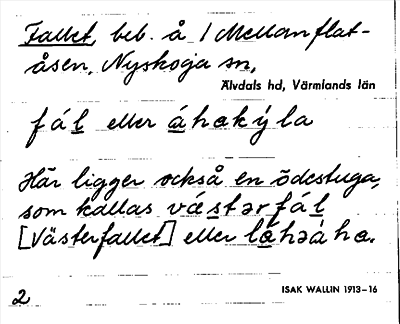 Fallet, beb. å 1 Mellanflat-
åsen, Nyskoga sn,
Älvdals hd, Värmlands län
fál eller áhakýla
Här ligger också en ödestuga,
som kallas västərfál
[Västerfallet] eller
2
ISAK WALLIN 1913-16